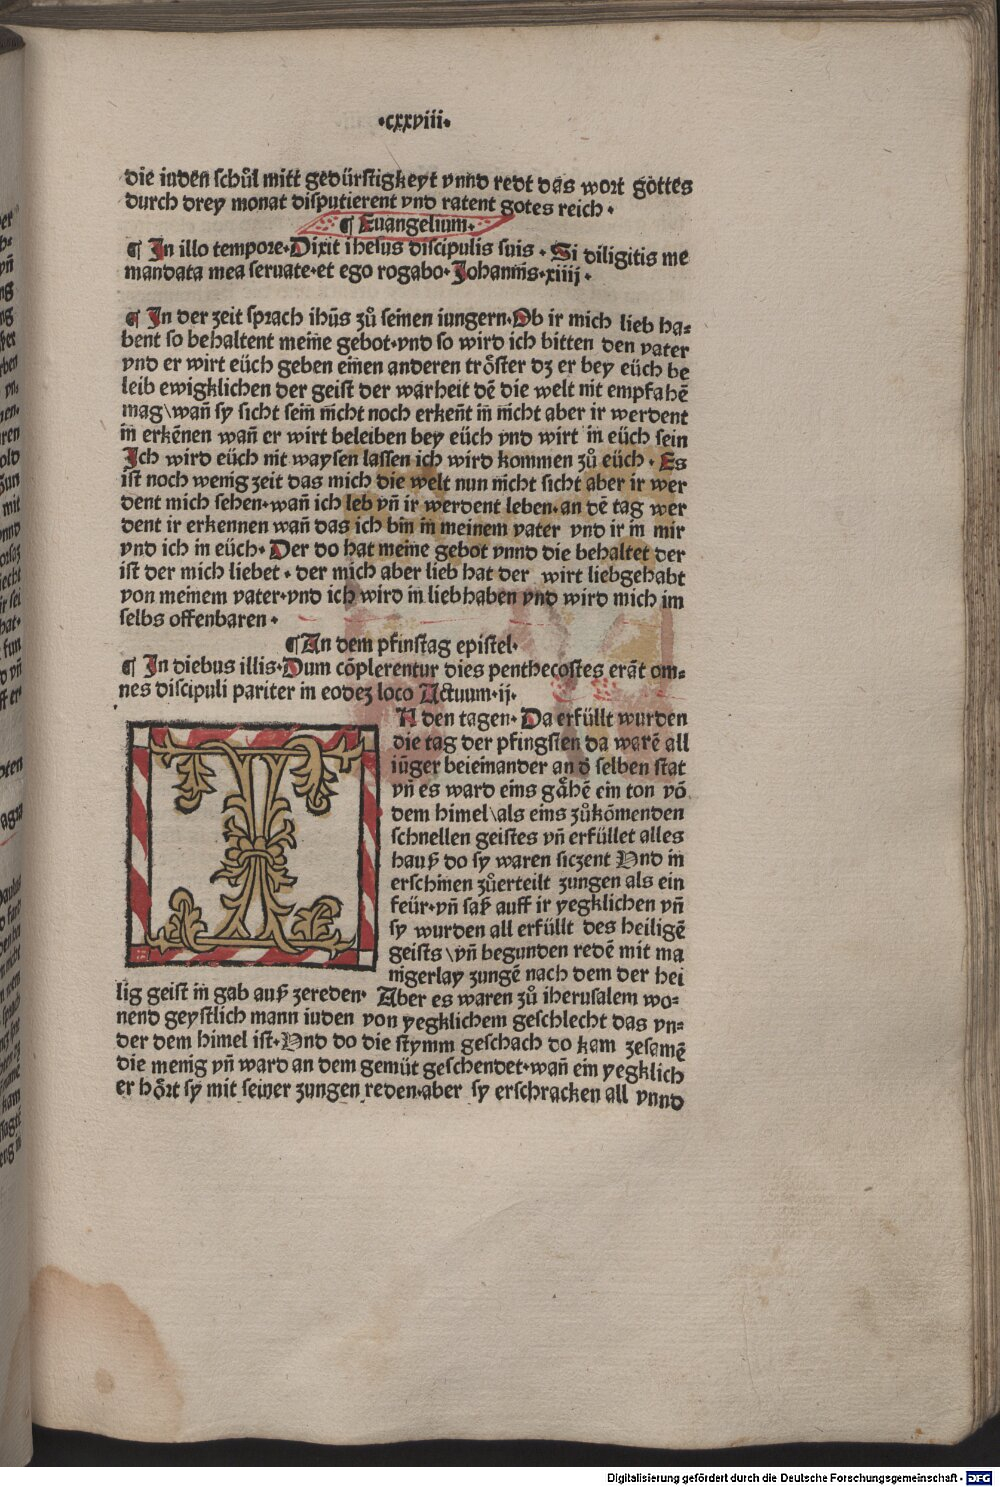 ·cxxviii·
die iuden schůl mitt gedürstigkeyt vnnd redt das wort gottes
durch drey monat disputierent vnd ratent gotes reich ·
¶ Euangelium·
¶ In illo tempore·Dixit ihesus discipulis suis · Si diligitis me
mandata mea seruate·et ego rogabo·Johannis·xiiij·
¶ In der zeit sprach ihūs zů seinen iungern·Ob ir mich lieb ha=
bent so behaltent meine gebot·vnd so wird ich bitten den vater
vnd er wirt eüch geben einen anderen tröster dz er bey eüch be
leib ewigklichen der geist der warheit dē die welt nit empfahē
mag\wañ sy sicht sein nicht noch erkeñt in nicht aber ir werdent
in erkēnen wañ er wirt beleiben bey eüch vnd wirt in eüch sein
Ich wird eüch nit waysen lassen ich wird kommen zů eüch · Es
ist noch wenig zeit das mich die welt nun nicht sicht aber ir wer
dent mich sehen·wañ ich leb vñ ir werdent leben·an dē tag wer
dent ir erkennen wañ das ich bin in meinem vater vnd ir in mir
vnd ich in eüch· Der do hat meine gebot vnnd die behaltet der
ist der mich liebet · der mich aber lieb hat der wirt liebgehabt
von meinem vater·vnd ich wird in liebhaben vnd wird mich im
selbs offenbaren ·
¶ An dem pfinstag epistel·
¶ In diebus illis·Dum cōplerentur dies penthecostes erāt om=
nes discipuli pariter in eodeȝ loco Actuum·ij·
IN den tagen· Da erfüllt wurden
die tag der pfingsten da warē all
iūger beieinander an d̄ selben stat
vñ es ward eins gåhē ein ton vō
dem himel\als eins zůkōmenden
schnellen geistes vñ erfüllet alles
hauß do sy waren siczent Vnd in
erschinen zůerteilt zungen als ein
feür·vñ saß auff ir yegklichen vñ
sy wurden all erfüllt des heiligē
geists\vñ begunden redē mit ma
nigerlay zungē nach dem der hei
lig geist in gab auß zereden· Aber es waren zů iherusalem wo=
nend geystlich mann iuden von yegklichem geschlecht das vn=
der dem himel ist·Vnd do die stymm geschach do kam zesamē
die menig vñ ward an dem gemüt geschendet·wañ ein yegklich
er hört sy mit seiner zungen reden·aber sy erschracken all vnnd
Digitalisierung gefördert durch die Deutsche Forschungsgemeinschaft - DFG